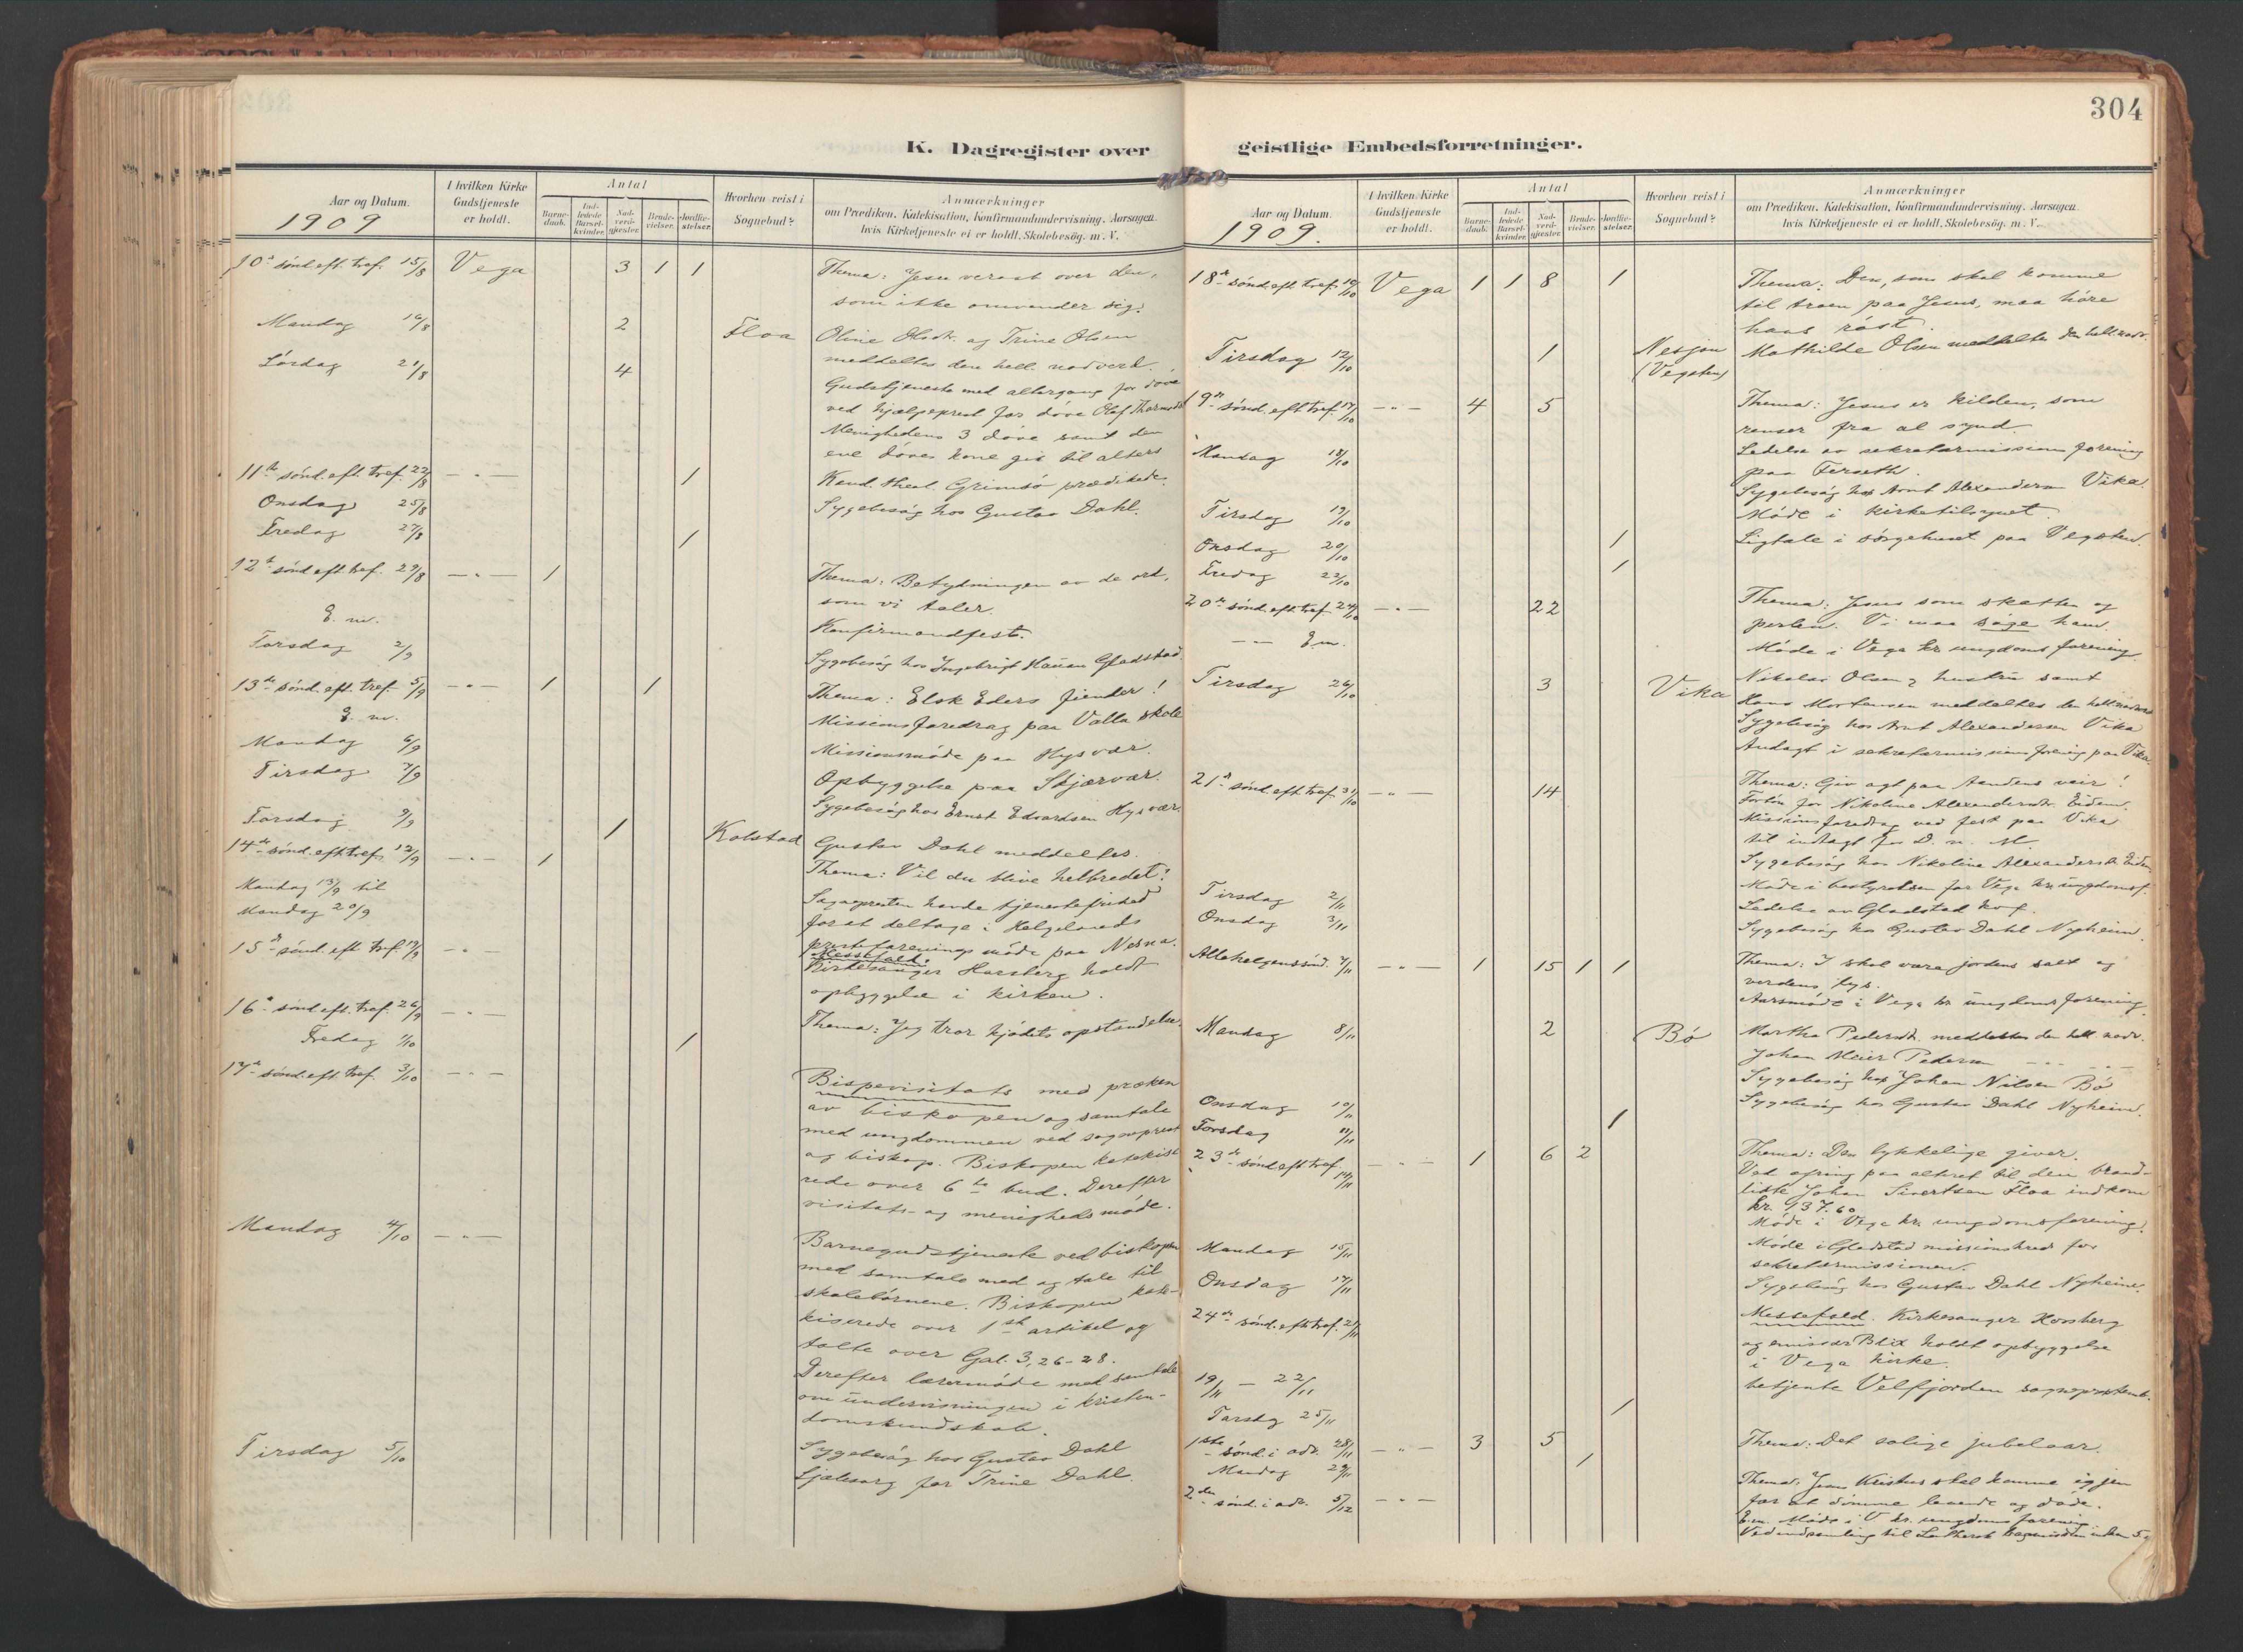 304
K. Dagregister over geistlige Embedsforretninger.
Aar og Datum.
1909
I hvilken Kirke Gudstjeneste er holdt.
Antal
Barnedaab.
Indledede Barselkvinder.
Nadverdgjester.
Bevielser.
Jordfæstelser.
Hvorhen reist i Sognebud?
Anmærkninger
om Prædiken, Katekisation, Konfirmandundervisning. Aarsagen
hvis Kirketjeneste ei er holdt. Skolebesög. m. V.
10de sönd. eft. tref. 15/8 Vega 3 1 1 Thema: Jesu verast over den,
som ikke omvender sig.
Mandag 16/8 2 Floa Oline Olsdt. og Trine Olsen
meddeltes den hell. nadverd.
Lördag 21/8 4 Gudstjeneste med altergang for döve
ved hjælpeprest for döve Olaf
Menighedens 3 döve samt den
ene döves kone gik til alters
11te sönd. eft. tref. 22/8 — " — 1 Kand. theol. Grimsö prædikede.
Onsdag 25/8 Sygebesög hos Gustav Dahl.
Fredag 27/8 1
12te sönd. eft. tref. 29/8 — " — 1 Thema: Betydningen av de ord,
som vi taler.
E. m. Konfirmandfest.
Torsdag 2/9 Sygebesög hos Ingebrigt Gladstad.
13de sönd. eft. tref. 5/9 — " — 1 1 Thema: Elsk Eders fiender!
E. m. Missionsforedrag paa Valla skole
Mandag 6/9 Missionsmöde paa Hysvær.
Tirsdag 7/9 Opbyggelse paa Skjærvær.
Sygebesög hos Ernst Edvardsen Hysvær.
Torsdag 9/9 1 Kolstad Gustav Dahl meddeltes.
14de sönd. eft. tref. 12/9 — " — 1 Thema: Vil du blive helbredet?
Mandag 13/9 til
Mandag 20/9
Sognepresten havde tjenestefrihed
for at deltage i Helgelands
presteforenings möde paa Nesna.
15de sönd. eft. tref. 19/9 — " — Messefald.
Kirkesanger Horsberg holdt
opbyggelse i kirken.
16de sönd. eft. tref. 26/9 — " — Thema: Jeg tror kjödets opstandelse.
Fredag 1/10 1
17de sönd. eft. tref. 3/10 — " — Bispevisitats med præken
av biskopen og samtale
med ungdommen ved sogneprest
og biskop. Biskopen kateki-
rede over 6te bud. Derefter
visitats- og menighedsmöde.
Mandag 4/10 — " — Barnegudstjeneste ved biskopen
med samtale med og tale til
skolebörnene. Biskopen kate-
kiserede over 1ste artikel og
talte over Gal. 3, 26-28.
Derefter lærermöde med samtale
om undervisningen i kristen-
domskundskab.
Tirsdag 5/10 Sygebesög hos Gustav Dahl
Sjælesorg for Trine Dahl.
Aar og Datum.
1909.
I hvilken Kirke Gudstjeneste er holdt.
Antal
Barnedaab.
Indledede Barselkvinder.
Nadverdgjester.
Bevielser.
Jordfæstelser.
Hvorhen reist i Sognebud?
Anmærkninger
om Prædiken, Katekisation, Konfirmandundervisning. Aarsagen
hvis Kirketjeneste ei er holdt. Skolebesög. m. V.
18de sönd. eft. tref. 10/10 Vega 1 1 8 1 Thema: Den, som skal komme
til troen paa Jesus, maa höre
hans röst.
Tirsdag 12/10 1 Nesjon (Vegsten) Mathilde Olsen meddeltes den hell. nadv.
19de sönd. eft. tref. 17/10 — " — 4 5 Thema: Jesus er kilden, som
renser fra al synd.
Mandag 18/10 Ledelse av sekretærmissions forening
paa Ferseth.
Sygebesög hos Arnt Alexandersen Vika.
Tirsdag 19/10 Möde i kirketilsynet.
Onsdag 20/10 1 Ligtale i sörgehuset paa Vegsten.
Fredag 22/10 1
20de sönd. eft. tref. 24/10 — " — 22 Thema: Jesus som skatten og
perlen. Vi maa søge ham.
— — E. m. Möde i Vega kr. ungdoms forening.
Tirsdag 26/10 3 Vika Nikolai Olsen & hustru samt
Hans Mortensen meddeltes den hell. nadverd
Sygebesög hos Arnt Alexandersen Vika
Andagt i sekretærmissions forening paa Vika.
21de sönd. eft. tref. 31/10 — " — 14 Thema: Giv agt paa Aandens veir!
Forbön for Nikoline Alexandersdt. Eidem.
Missionsforedrag ved fest paa Vika
til indtægt for D. n. M.
Sygebesög hos Nikoline Alexandersdt. Eidem
Tirsdag 2/11 Möde i bestyrelsen for Vega kr. ungdomsf.
Onsdag 3/11 Ledelse av Gladstad kvf.
Sygebesög hos Gustav Dahl Nyheim.
Allehelgenssönd. 7/11 — " — 1 15 1 1 Thema: I skal være jordens salt og
verdens lys.
Aarsmöde i Vega kr. ungdoms forening.
Mandag 8/11 2 Bö Martha Pedersdt. meddeltes den hell. nadv.
Johan Meier Pedersen — " — " —
Sygebesög hos Johan Nilsen Bö
Onsdag 10/11 Sygebesög hos Gustav Dahl Nyheim.
Torsdag 11/11 1
23de sönd. eft. tref. 14/11 — " — 1 6 2 Thema: Den lykkelige giver.
Ved ofring paa altret til den brand-
lidte Johan Sivertsen Floa indkom
kr. 937.60
Möde i Vega kr. ungdomsforening.
Mandag 15/11 Möde i Gladstad missionskreds for
sekretærmissionen.
Onsdag 17/11 Sygebesög hos Gustav Dahl Nyheim.
24de sönd. eft. tref. 21/11 Messefald. Kirkesanger Horsberg
og emissær Blix holdt opbyggelse
i Vega kirke.
19/11 — 22/11 betjente Velfjorden sogneprestemb.
Torsdag 25/11 1
1ste sönd. i adv. 28/11 — " — 3 5 Thema: Det salige jubelaar.
Mandag 29/11 1
2den sönd. i adv. 5/12 — " — Thema: Jesus Kristus skal komme igjen
for at dömme levende og döde.
E. m. Möde i V. kr. ungdoms forening.
Ved indsamling til